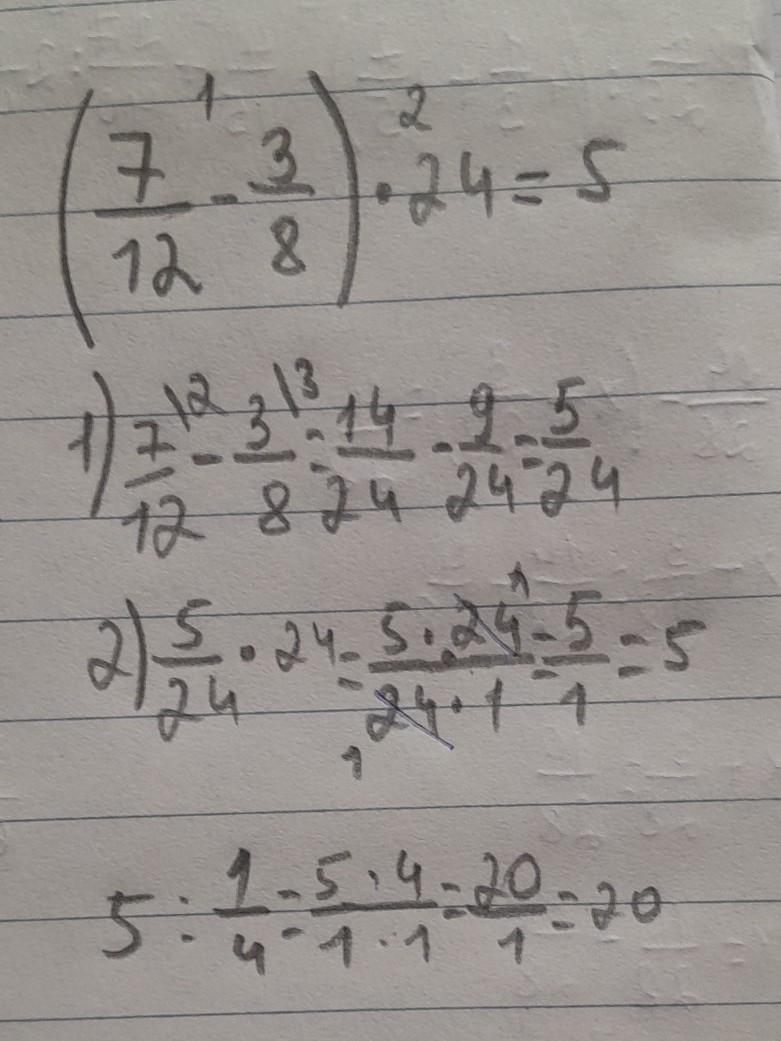 (7/12 - 3/8) · 24 = 5
1 2
1) 7/12 \2 - 3/8 \3 = 14/24 - 9/24 = 5/24
2) 5/24 · 24 = 5 · 24/24 · 1 = 5/1 = 5
1 1
5 : 1/4 = 5 · 4/1 · 1 = 20/1 = 20